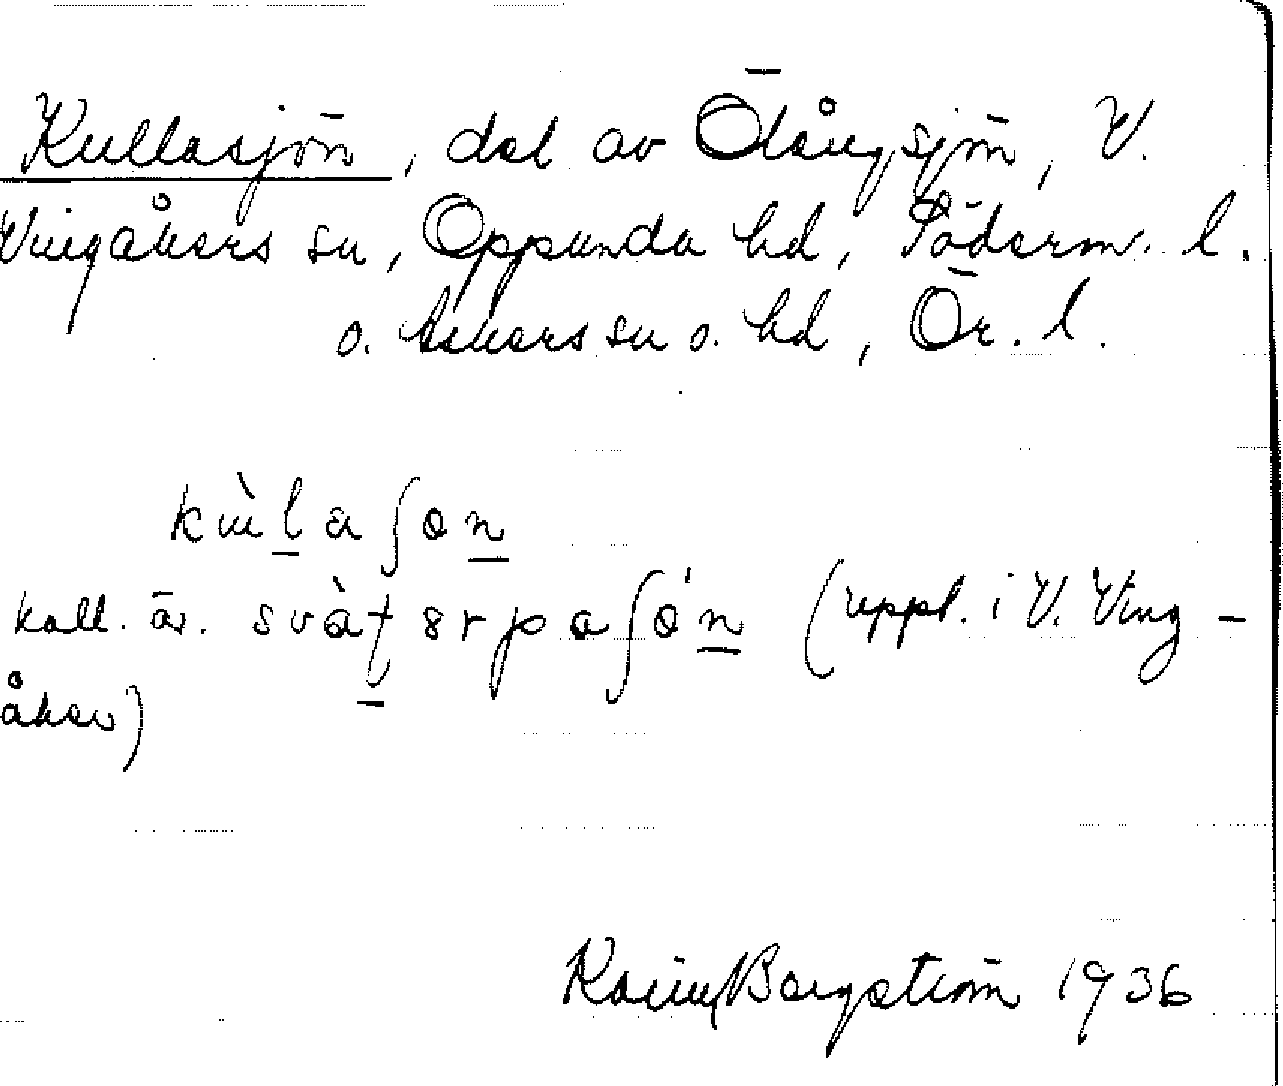 Kullasjön, del av Ölångsjön, V.
Vingåkers sn, Oppunda hd, Söderm. l.
o. Askers sn o. hd, Ör. l.
kùlaʃon
kall. äv. (uppt. i V. Ving-
åker)
Karin Bergström 1936